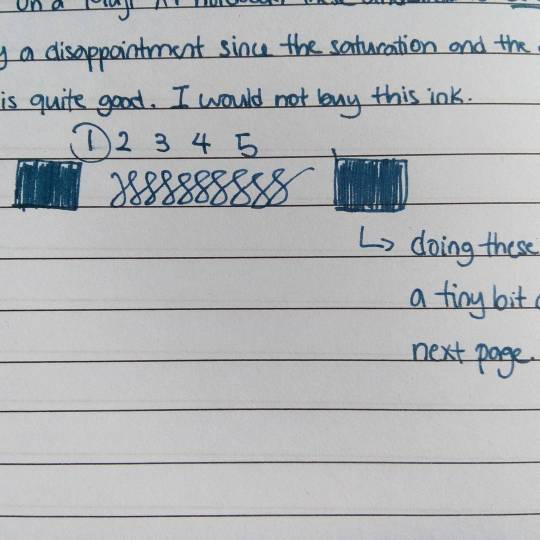 On a Muji A4 notebook, these
y a disappointment since the saturation and the
is quite good. I would not buy this ink.
1 2 3 4 5
↳ doing these
a tiny bit
next page.